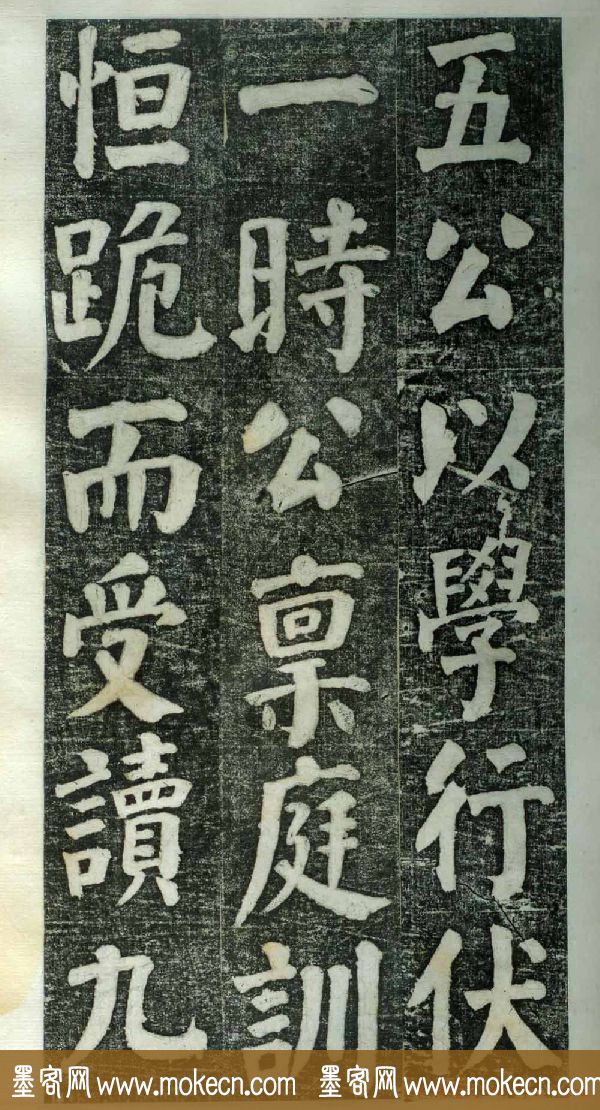 五公以學行伏
一時公稟庭訓
恒跪而受讀九
墨客网 www.mokecn.com 墨客网 www.mokecn.com